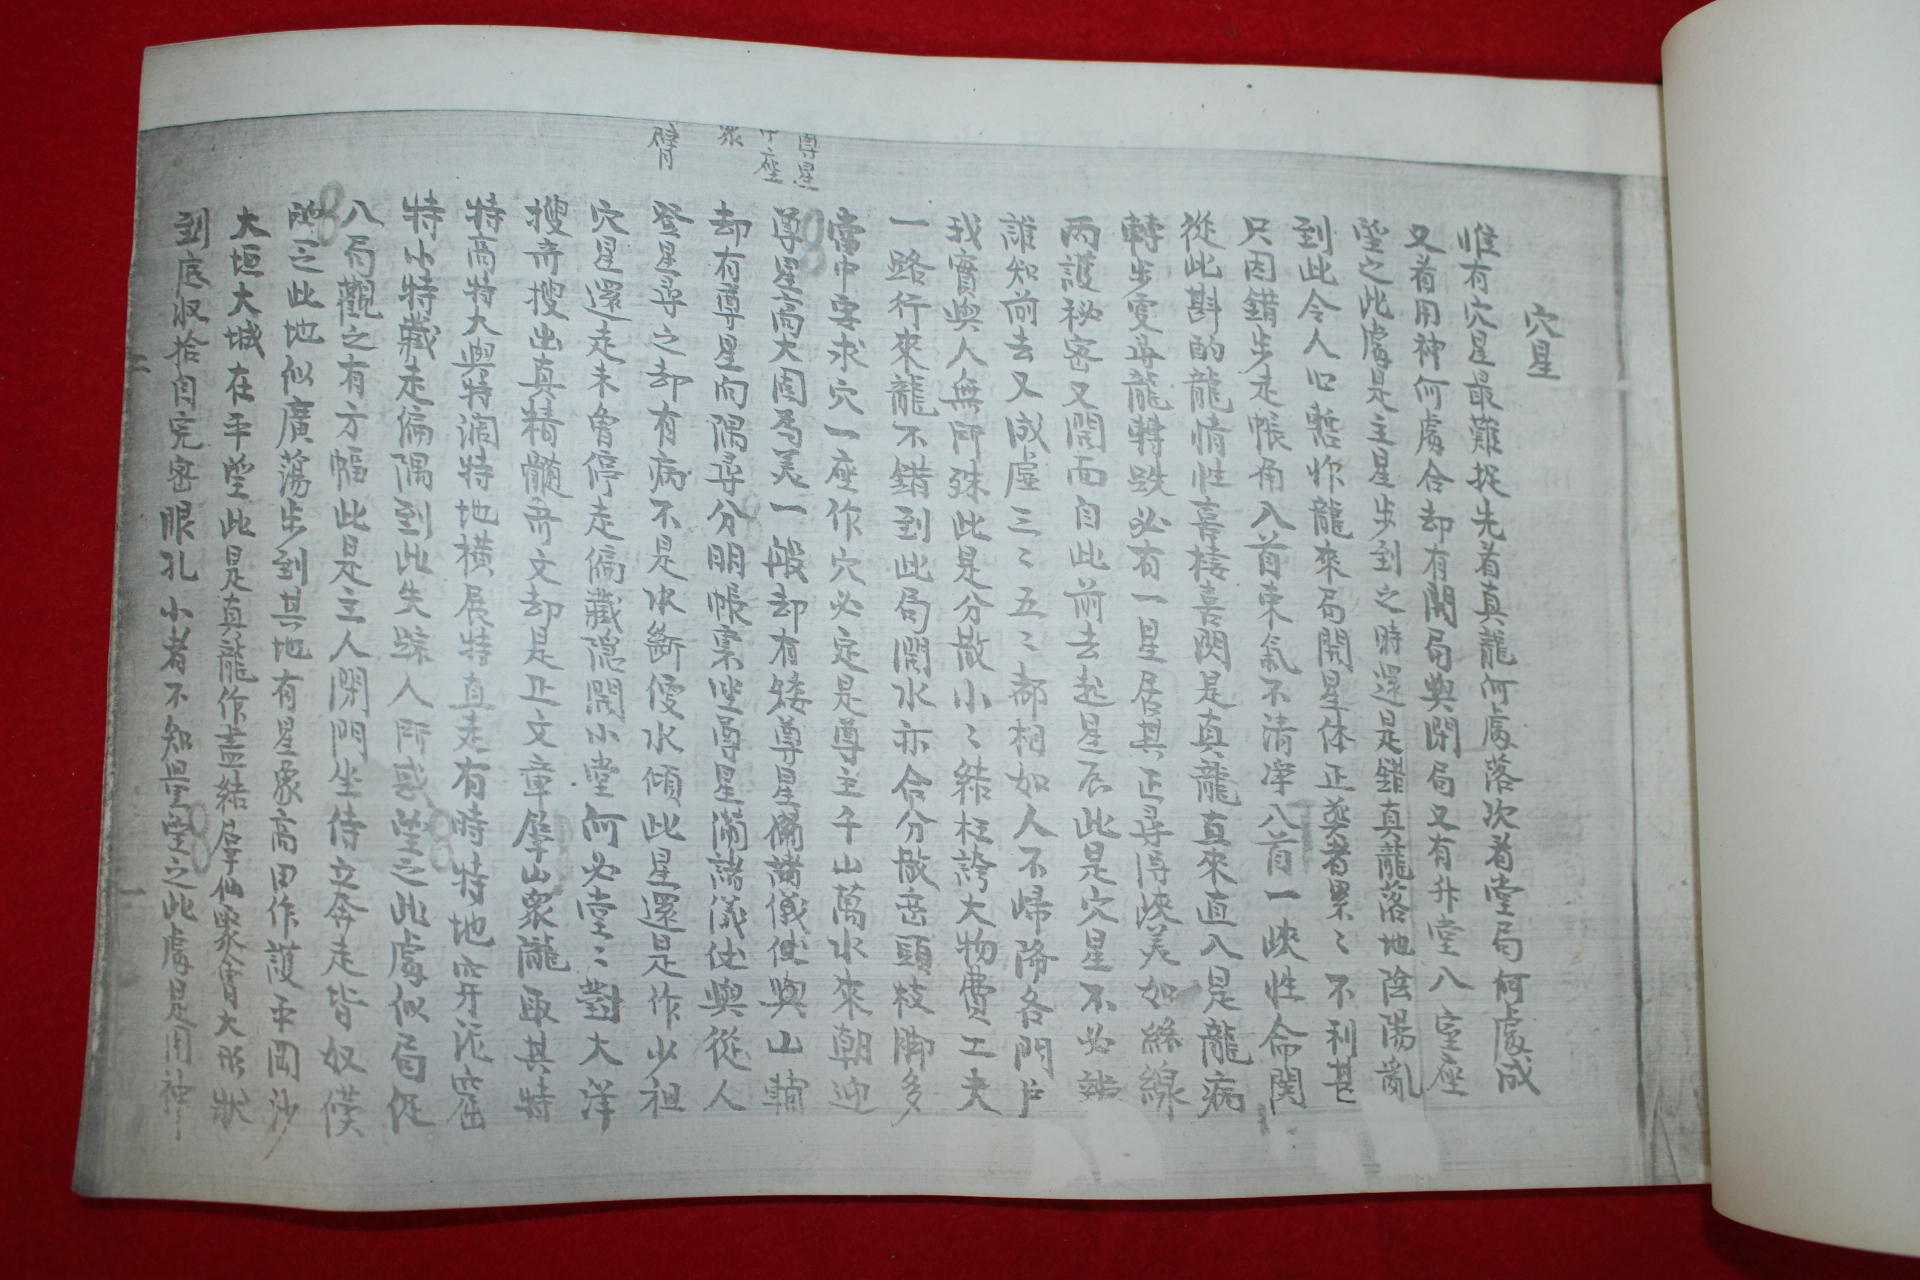 穴星
惟有穴星最難捉先着真龍何處落次着堂局何處成
又着用神何處合却有開局與閉局又有升堂入室座
望之此處是主星步到之時還是錯真龍落地陰陽亂
到此令人心暫怍龍來局開星体正葬者累〻不利甚
只因錯步走帳角入首束氣不清淨入首一峽性命関
從此斟酌龍情性喜棲喜閃是真龍直來直入是龍病
轉步更尋龍轉跌必有一星居其正尋得峽美如絲線
兩護秘密又開面自此前去起星辰此是穴星不必
誰知前去又成虛三〻五〻都相如人不歸降各門戶
我實與人無所殊此是分散小〻結枉誇大物費工夫
一路行來龍不錯到此局開水亦合分散岳頭枝脚多
當中要求穴一座作穴必定是尊主千山萬水來朝迎
尊星高大固為美一般却有矮尊星備諸儀仗與山
却有尊星向隅尋分明帳裏坐尊星滿諸儀仗與從人
登星尋之却有病不是水斷便水傾此星還是作少祖
穴星還走未曾停走偏藏隱開小堂何必堂〻對大洋
搜奇搜出真精髓奇文却是正文章羣山衆隴取其特
特高特大與特濶特地橫展特直走有時特地穿泥窟
特小特藏走偏隅到此失踪人所惑望之此處似局促
入局觀之有方幅此是主人閉門坐侍立奔走皆奴僕
望之此地似廣蕩步到其地有星象高田作護平岡沙
大垣大城在平望此是真龍作蓋結羣仙聚會大形狀
到底收拾自完密眼孔小者不知量望之此處是用神
尊星
中座
衆
臂